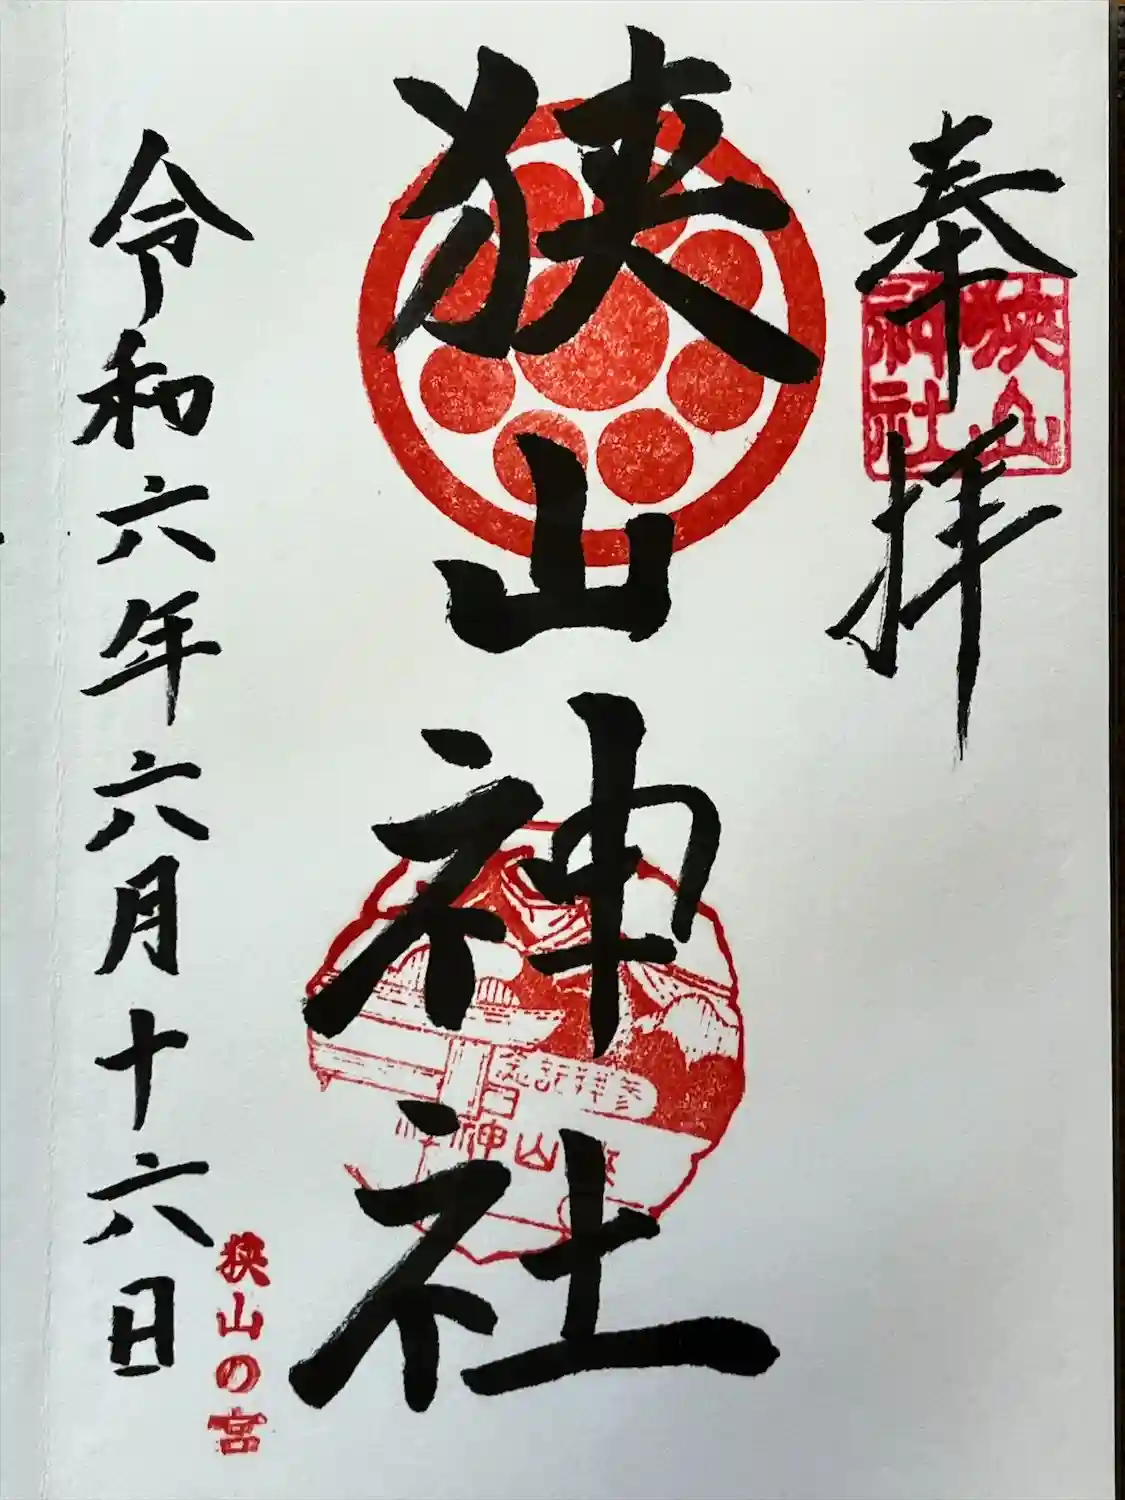 奉拝
狭山神社
狭山神社
参拝記念
山神社
令和六年六月十六日
狭山の宮